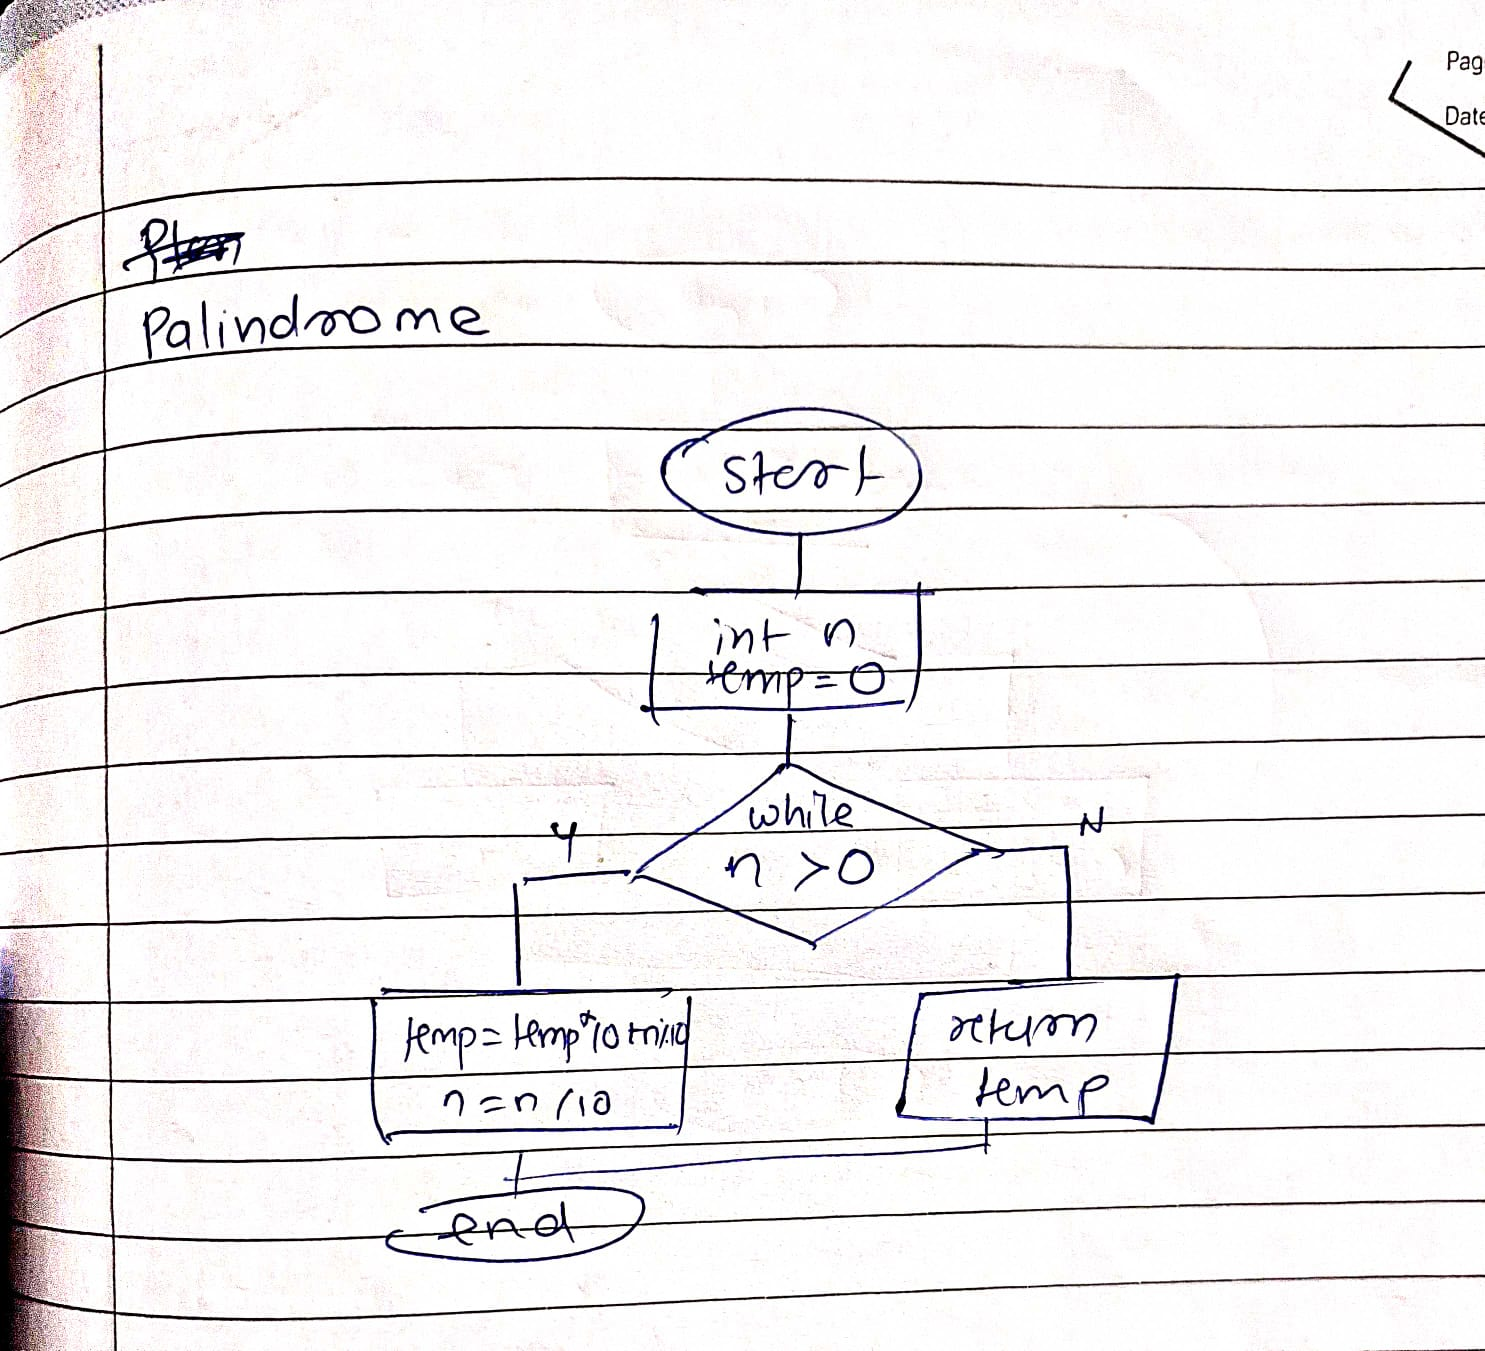 Pag
Date
Palindrome
start
int n
temp=0
while
n >0
Y
N
temp=temp*10+n%10
n=n/10
return
temp
end